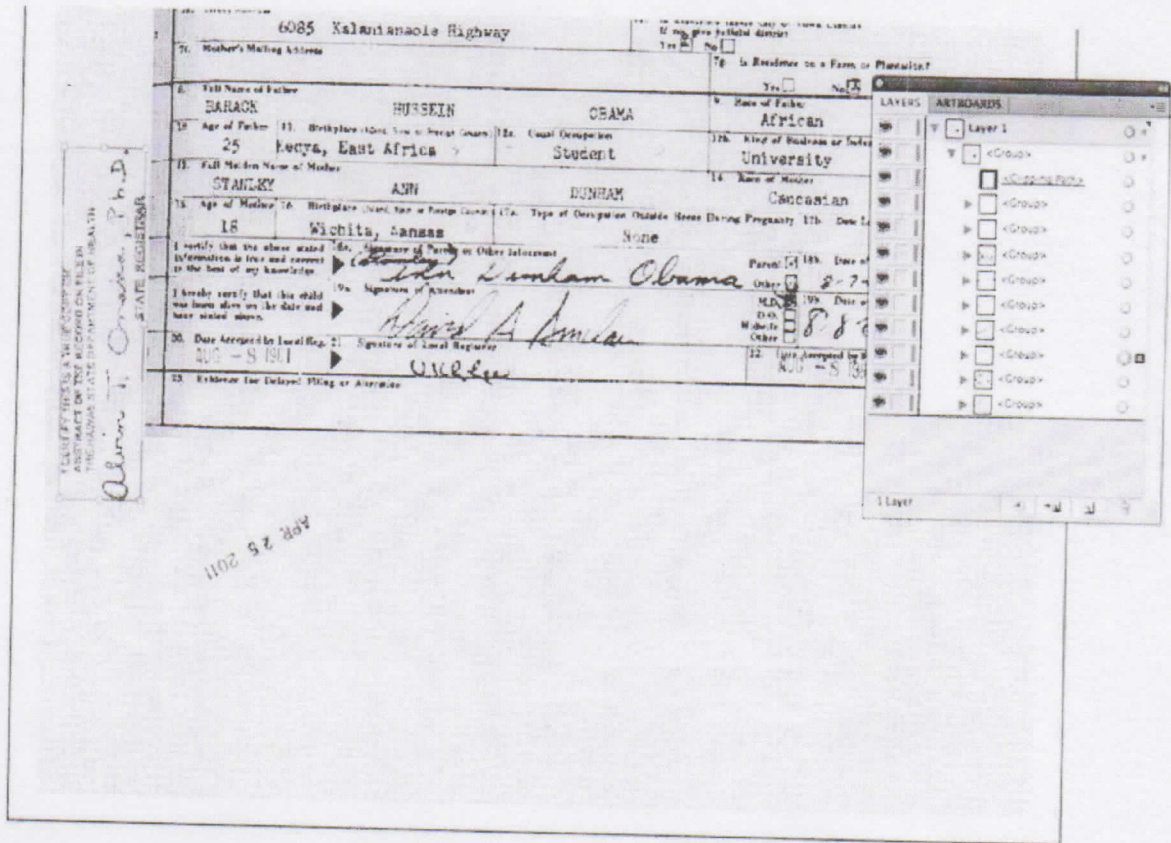 6085 Kalanianaole Highway
If no, give judicial district
Yes No
7f. Mother's Mailing Address
7g. Is Residence on a Farm or Plantation?
Yes No
8. Full Name of Father
BARACK HUSSEIN OBAMA
9. Race of Father
African
10. Age of Father 11. Birthplace 12a. Usual Occupation
25 Kenya, East Africa Student
12b. Kind of Business or
University
13. Full Maiden Name of Mother
STANLEY ANN DUNHAM
14. Race of Mother
Caucasian
15. Age of Mother 16. Birthplace 17a. Type of Occupation Outside Home During Pregnancy 17b. Date
18 Wichita, Kansas None
I certify that the above stated
information is true and correct
to the best of my knowledge.
18a. Signature of Parent or Other Informant
Ann Dunham Obama
Parent
Other
18b. Date of
8-7-
I hereby certify that this child
was born alive on the date and
hour stated above.
19a. Signature of Attendant
M.D.
D.O.
Midwife
Other
19b. Date
8-8-
20. Date Accepted by Local Reg.
AUG -8 1961
21. Signature of Local Registrar
22. Date Accepted by
AUG -8
23. Evidence for Delayed Filing or Alteration
I CERTIFY THIS IS A TRUE COPY OR
ABSTRACT OF THE RECORD ON FILE IN
THE HAWAII STATE DEPARTMENT OF HEALTH
Alvin T. Onaka, Ph.D.
STATE REGISTRAR
APR 25 2011
LAYERS ARTBOARDS
Layer 1
<Group>
<Clipping Path>
<Group>
<Group>
<Group>
<Group>
<Group>
<Group>
<Group>
<Group>
<Group>
1 Layer